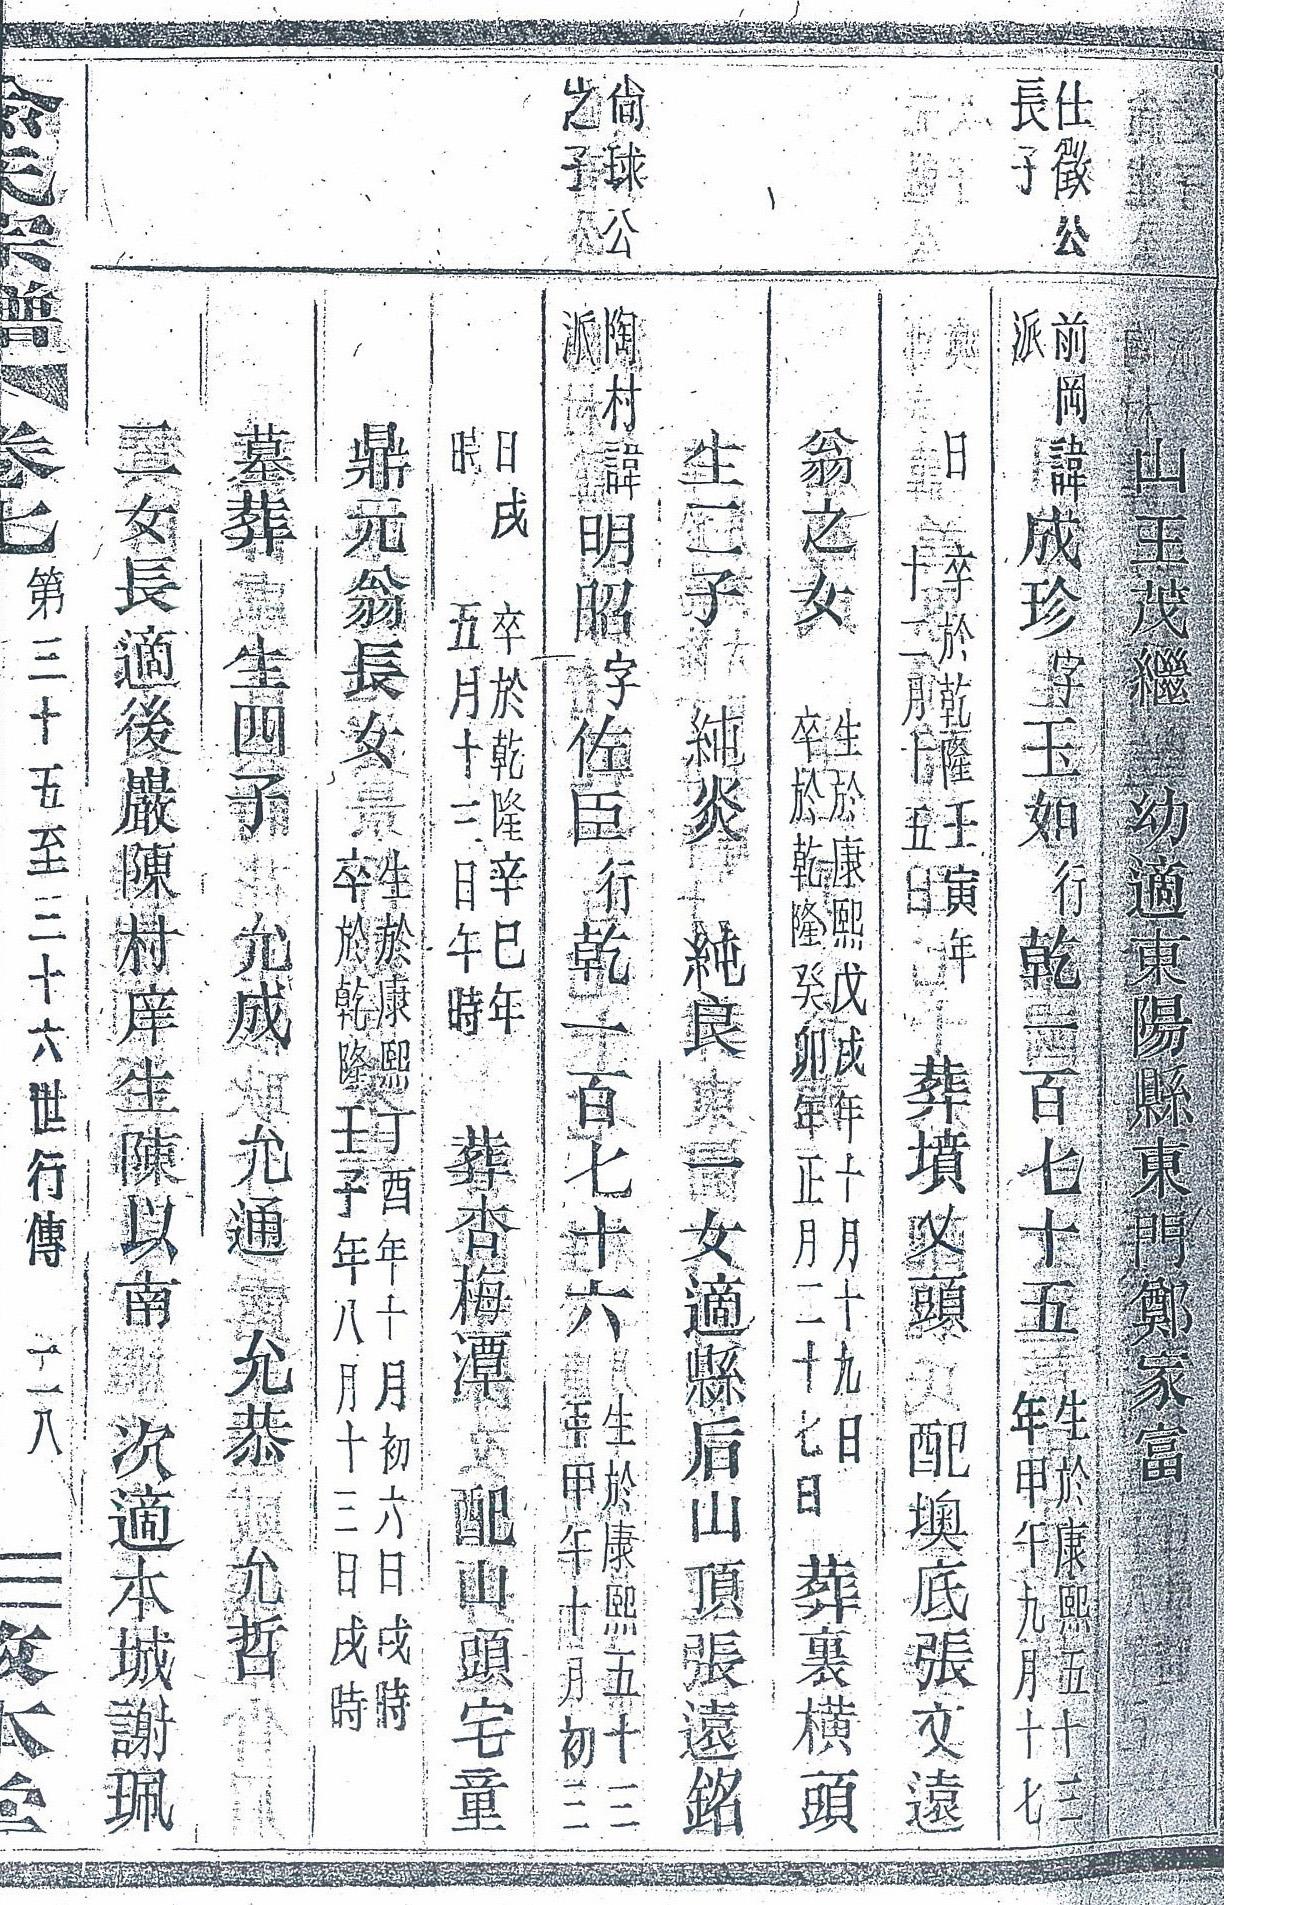 山王茂繼 幼適東陽縣東門鄭家富
仕徵公
長子
前岡諱
派
成珍字玉如行乾一百七十五
生於康熙五十三
年甲午九月十七
日 卒於乾隆壬寅年
十二月十五日
葬墳火頭 配墺底張文遠
翁之女
生於康熙戊戌年十月十九日
卒於乾隆癸卯年正月二十七日
葬裏橫頭
生二子 純炎 純良 一女適縣后山頂張遠銘
尙球公
之子
陶村諱
派
明昭字佐臣行乾一百七十六
生於康熙五十三
年甲午十月初三
日戌
時
卒於乾隆辛巳年
五月十三日午時
葬杏梅潭 配山頭宅童
鼎元翁長女
生於康熙丁酉年十月初六日戌時
卒於乾隆壬子年八月十三日戌時
墓葬 生四子 允成 允通 允恭 允哲
二女長適後嚴陳村庠生陳以南 次適本城謝珮
氏宗譜 卷七 第三十五至三十六世行傳 十一八 敦本堂